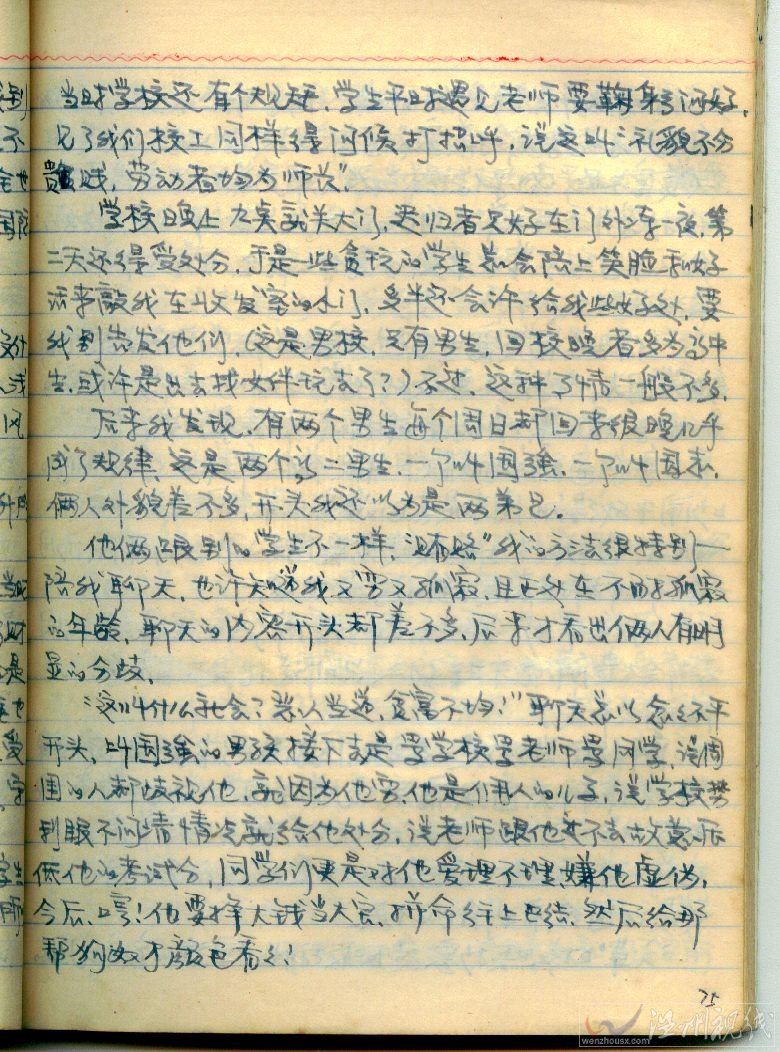 当时学校还有个规矩，学生平时遇见老师要鞠躬问好，
见了我们校工同样得问候打招呼，说这叫“礼貌不分
贵贱，劳动者均为师长”。
学校晚上九点就关大门，迟归者只好在门外冻一夜，第
二天还得受处分，于是一些贪玩的学生就会陪上笑脸和好
话来敲我在收发室的小门，多半还会许给我些好处，要
我别告发他们，（这是男校，只有男生，回校晚者多为高中
生，或许是出去找女伴玩去了？）不过，这种事情一般不多。
后来我发现，有两个男生每个周日都回来很晚几乎
成了规律，这是两个高二男生，一个叫国强，一个叫国泰，
俩人外貌差不多，开头我还以为是两弟兄。
他俩跟别的学生不一样，“贿赂”我的方法很特别——
陪我聊天，也许知道我又穷又孤寂，且正处在不甘孤寂
的年龄，聊天的内容开头都差不多，后来才看出俩人有明
显的分歧。
“这叫什么社会？恶人当道，贫富不均！”聊天总以忿忿不平
开头，叫国强的男孩接下去是骂学校骂老师骂同学，说周
围的人都歧视他，就因为他穷，他是佣人的儿子，说学校势
利眼不问清情况就给他处分，说老师跟他过不去故意压
低他的考试分，同学们更是对他爱理不理嫌他虚伪，
今后，哼！他要挣大钱当大官，拼命往上巴结，然后给那
帮狗奴才颜色看看！
75
温州视线
wenzhousx.com